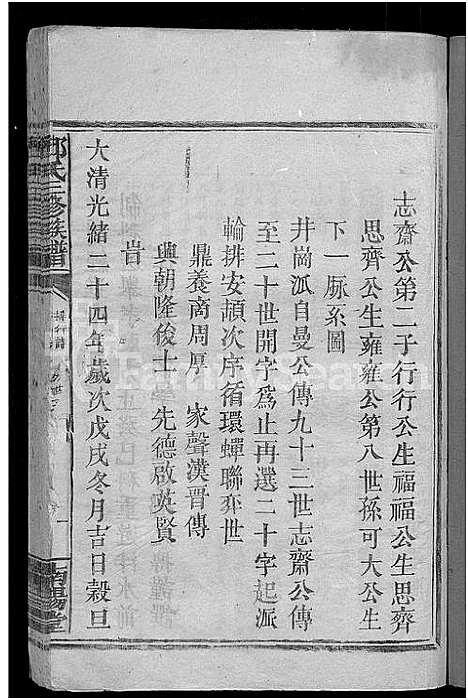 志齋公第二子行行公生福福公生思齊
思齊公生雍雍公第八世孫可大公生
下一脉系圖
井崗派自曼公傳九十三世志齋公傳
至二十世開字為止再選二十字起派
輪排安頡次序循環蟬聯弈世
鼎養商周厚 家聲漢晉傳
興朝隆俊士 先德啟英賢
旹
大清光緒二十四年歲次戊戌冬月吉日穀旦
氏三修族譜
南陽堂
FamilySearch